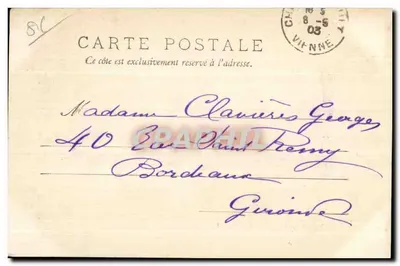 86
CARTE POSTALE
Ce côté est exclusivement réservé à l'adresse.
8 -5
03
VIENNE
Madame Clavières Georges
40 Rue Saint Remy
Bordeaux
Gironde